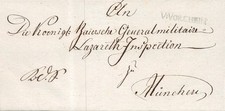 An
Die Koenigl Baiersche General militaire
Lazareth Inspection
in
München